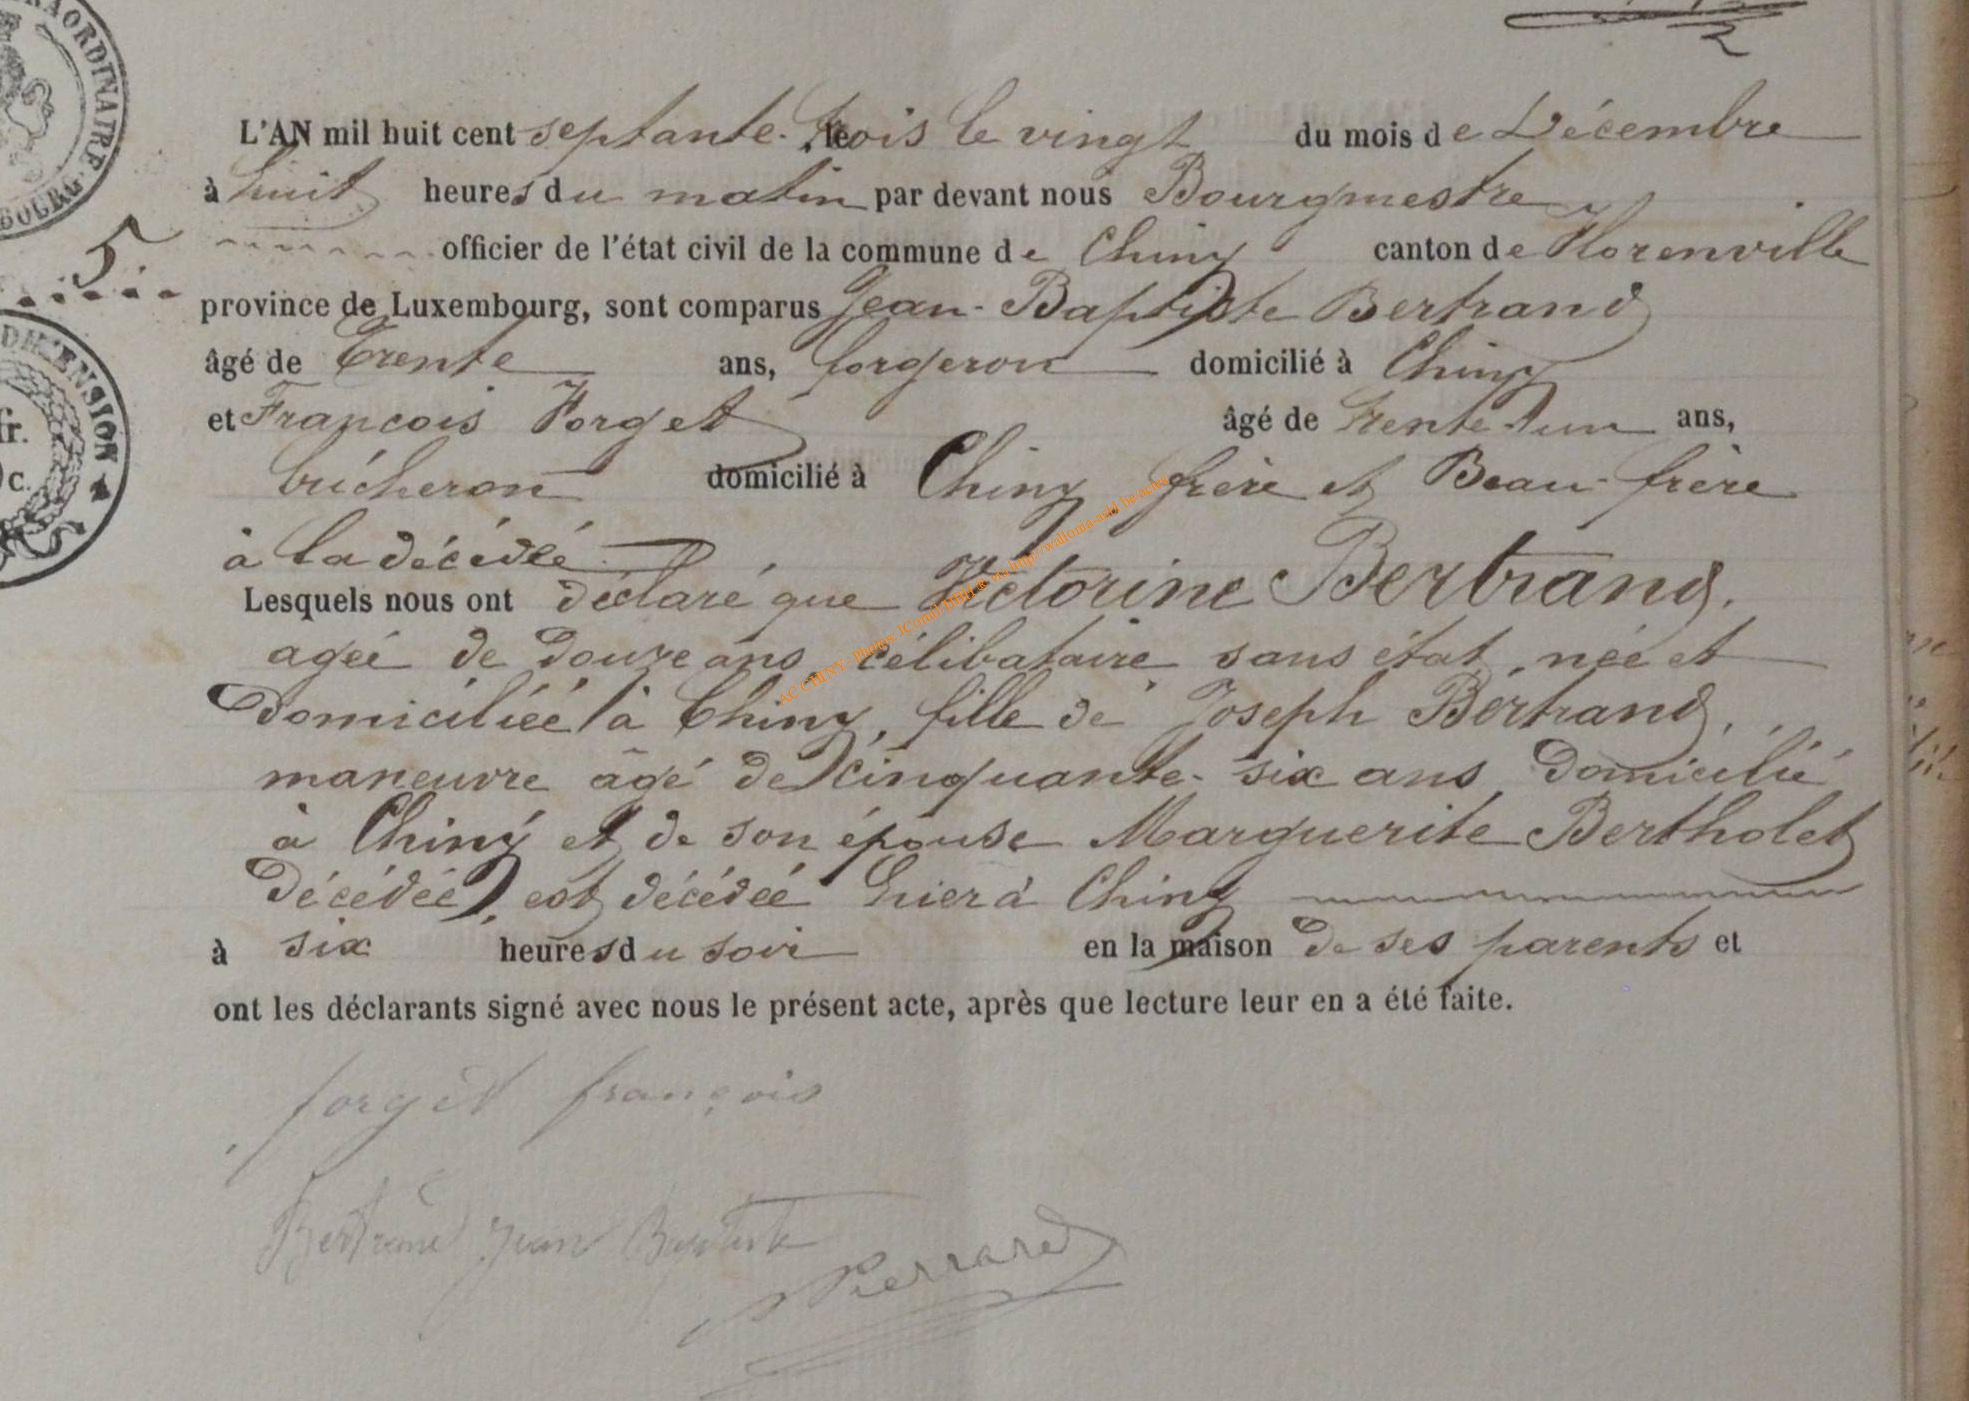 RAORDINAIRE.
BOURG.
L'AN mil huit cent septante-trois le vingt du mois de Décembre
à huit heures du matin par devant nous Bourgmestre
officier de l'état civil de la commune de Chiny canton de Florenville
5.
province de Luxembourg, sont comparus Jean-Baptiste Bertrand
âgé de trente ans, forgeron domicilié à Chiny
et François Forget âgé de trente d'un ans,
bûcheron domicilié à Chiny frère et Beau-frère
à la décédée
DIMENSION
fr.
c.
Lesquels nous ont déclaré que Victorine Bertrand,
agée de douze ans, célibataire sans état, née et
domiciliée à Chiny, fille de Joseph Bertrand,
maneuvre âgé de cinquante-six ans domicilié
à Chiny et de son épouse Marguerite Bertholet
décédée, est décédée hier à Chiny
à six heures du soir en la maison de ses parents et
ont les déclarants signé avec nous le présent acte, après que lecture leur en a été faite.
forget françois
Bertrand Jean Baptiste
Pierrard